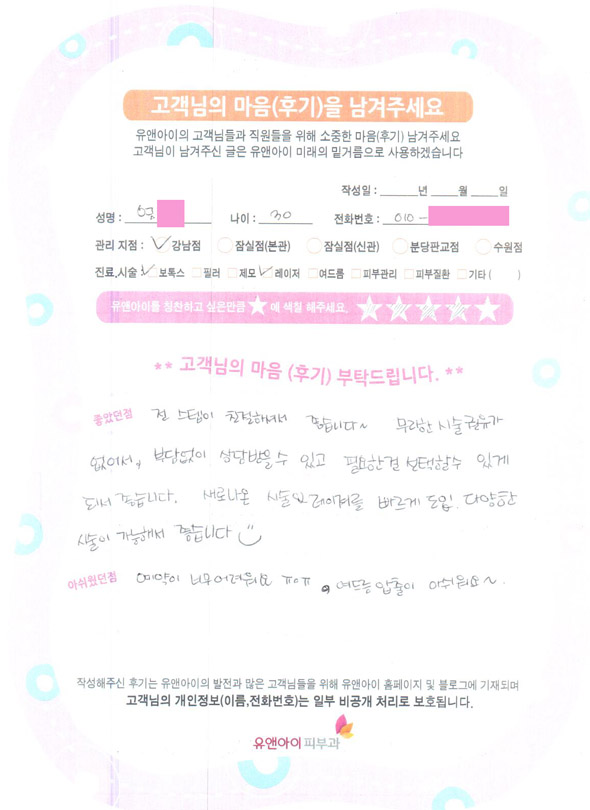 고객님의 마음(후기)을 남겨주세요
유앤아이의 고객님들과 직원들을 위해 소중한 마음(후기) 남겨주세요
고객님이 남겨주신 글은 유앤아이 미래의 밑거름으로 사용하겠습니다
작성일 : 년 월 일
성명 : 나이 : 30 전화번호 : 010 -
관리 지점 : 강남점 잠실점(본관) 잠실점(신관) 분당판교점 수원점
진료,시술 : 보톡스 필러 제모 레이저 여드름 피부관리 피부질환 기타 ( )
유앤아이를 칭찬하고 싶은만큼 ★ 에 색칠 해주세요. ★★★★★
** 고객님의 마음 (후기) 부탁드립니다. **
좋았던점 전 스텝이 친절하셔서 좋습니다~ 무리한 시술권유가
없어서, 부담없이 상담받을수 있고 필요한걸 선택할수 있게
되니 좋습니다. 새로나온 시술 레이저를 빠르게 도입. 다양한
시술이 가능해서 좋습니다
아쉬웠던점 예약이 너무 어려워요 ㅠㅠ, 여드름 압출이 아쉬워요~.
작성해주신 후기는 유앤아이의 발전과 많은 고객님들을 위해 유앤아이 홈페이지 및 블로그에 기재되며
고객님의 개인정보(이름,전화번호)는 일부 비공개 처리로 보호됩니다.
유앤아이피부과